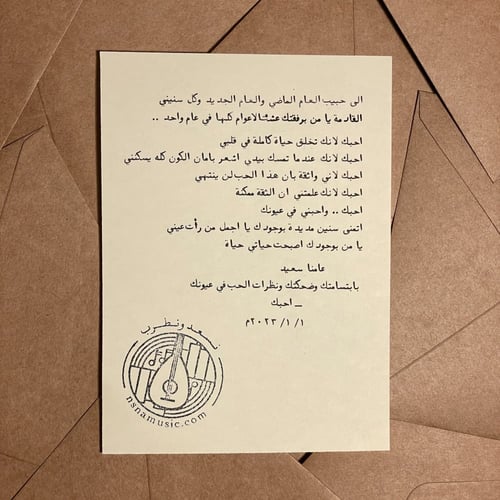 الى حبيب العام الماضي والعام الجديد وكل سنيني
القادمة يا من برفقتك عشنا الاعوام كلها في عام واحد ..
احبك لانك تخلق حياة كاملة في قلبي
احبك لانك عندما تمسك بيدي اشعر بامان الكون كله يسكنني
احبك لاني واثقة بان هذا الحب لن ينتهي
احبك لانك علمتني ان الثقة ممكنة
احبك .. واحبني في عيونك
اتمنى سنين مديدة بوجودك يا اجمل من رأت عيني
يا من بوجودك اصبحت حياتي حياة
عامنا سعيد
بابتسامتك وضحكتك ونظرات الحب في عيونك
ـ احبك
١ / ١ / ٢٠٢٣م
نسعد ونطرب
nsnamusic.com